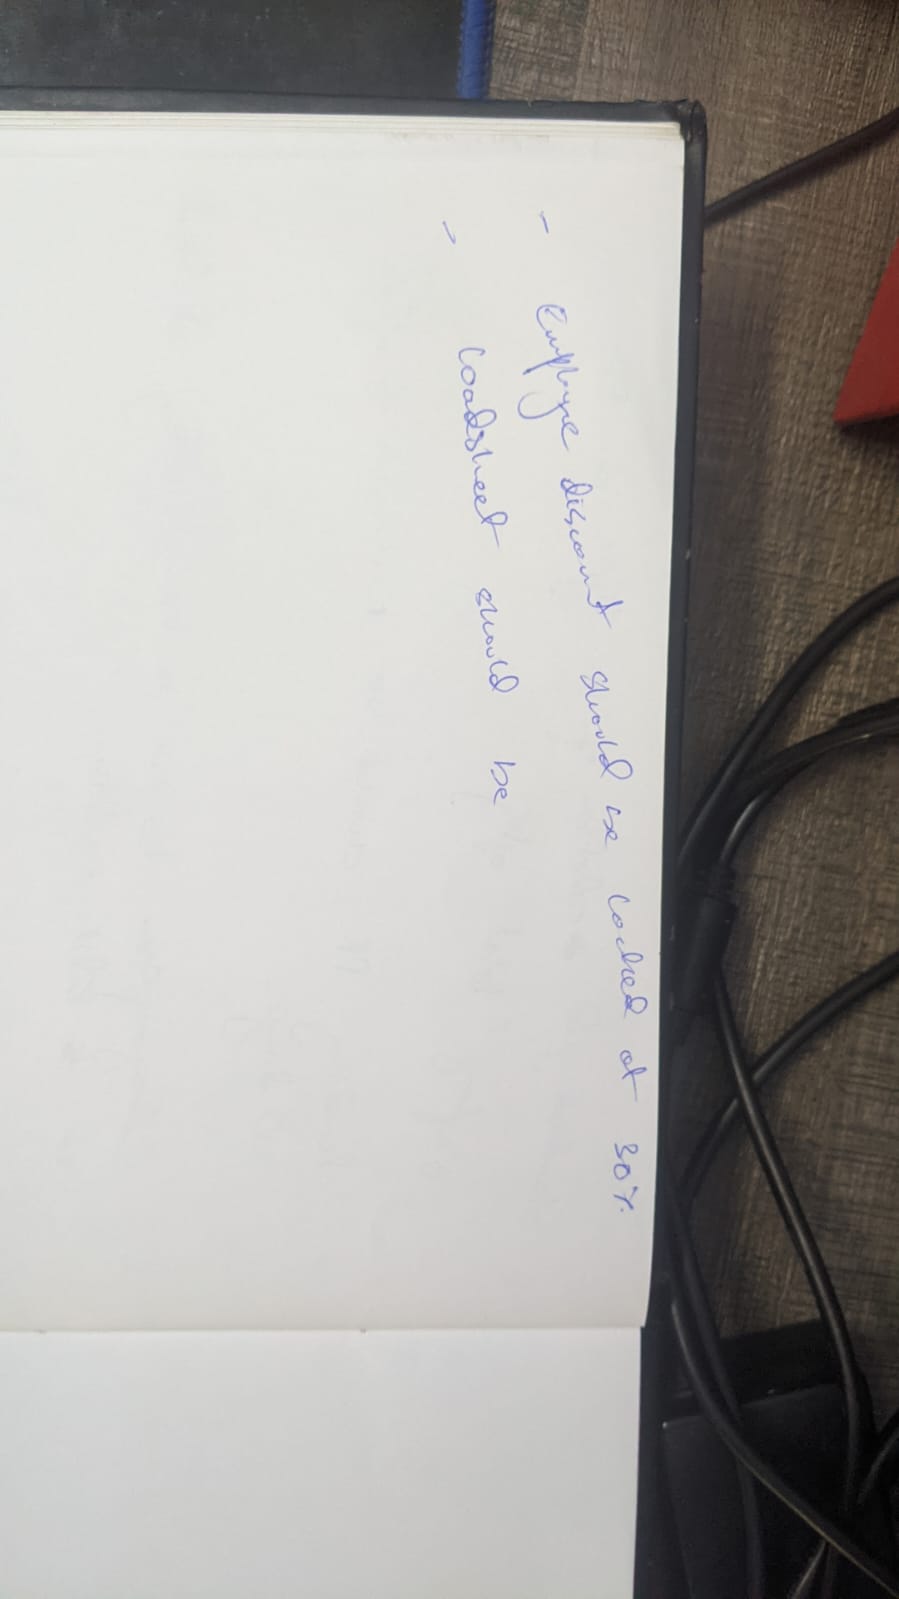 - Employee discount should be locked at 30%
- Loadsheet should be